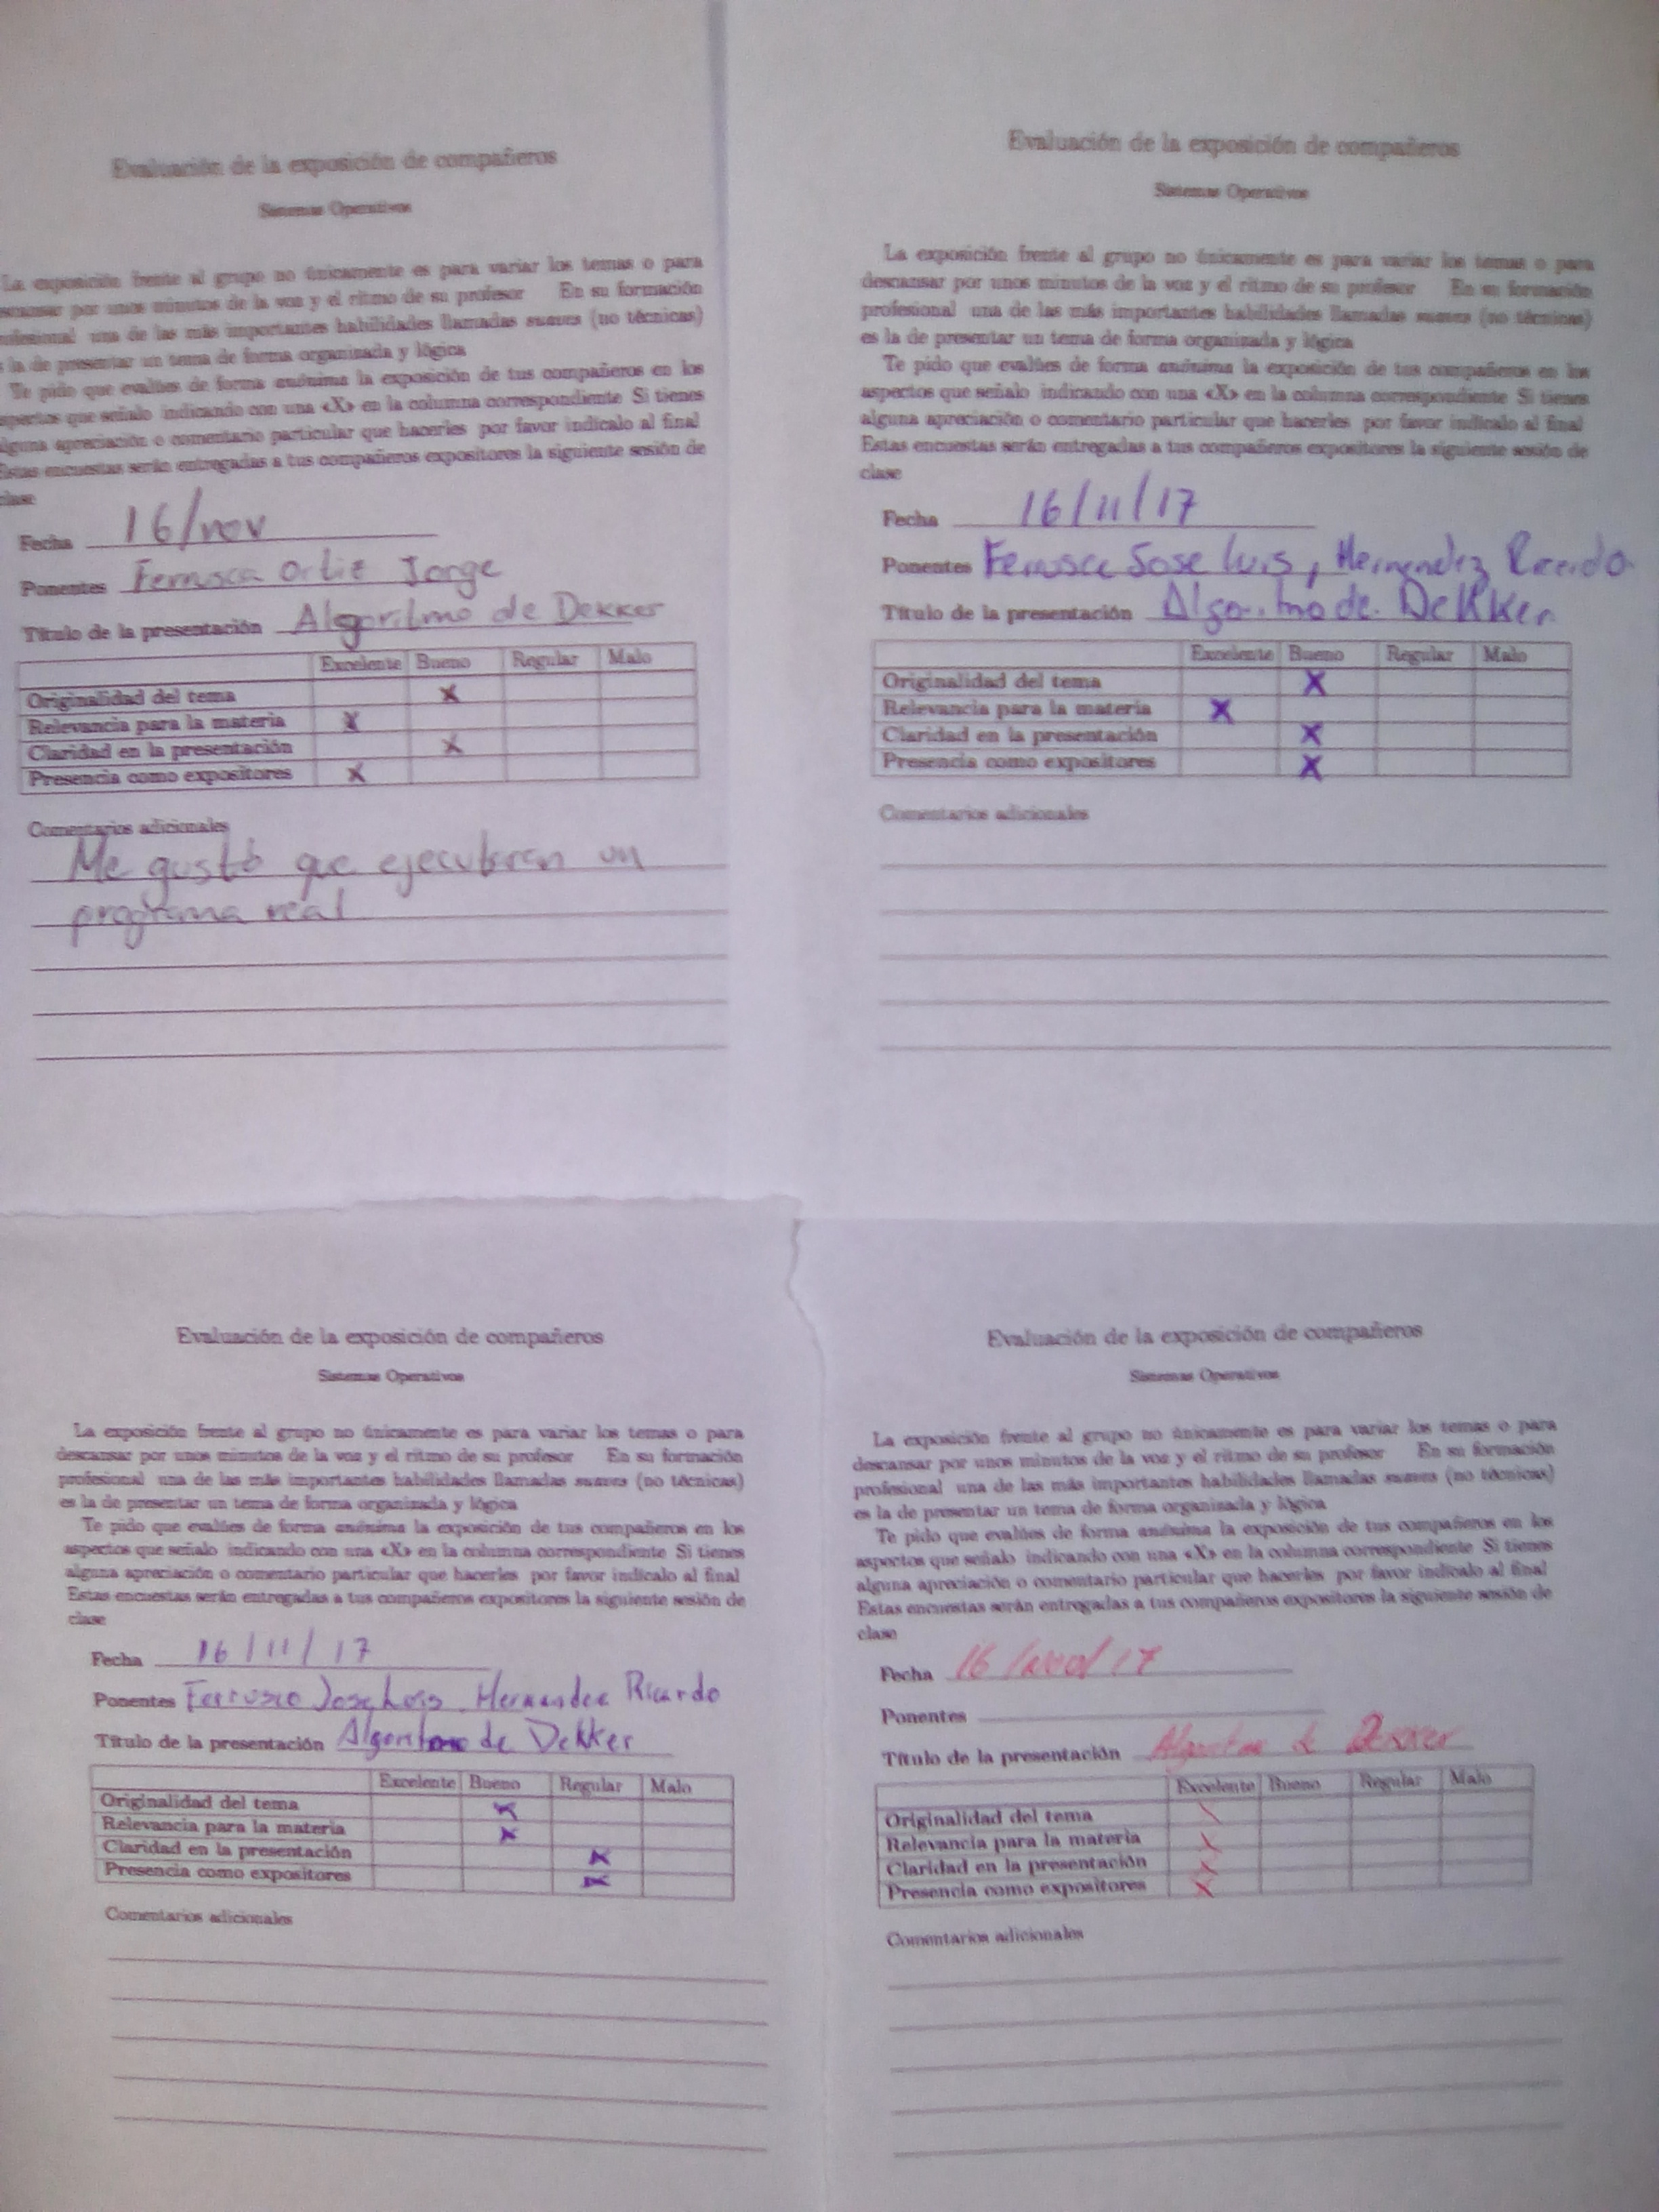 Evaluación de la exposición de compañeros
Sistemas Operativos
La exposición frente al grupo no únicamente es para variar los temas o para
descansar por unos minutos de la voz y el ritmo de su profesor En su formación
profesional una de las más importantes habilidades llamadas suaves (no técnicas)
es la de presentar un tema de forma organizada y lógica
Te pido que evalúes de forma anónima la exposición de tus compañeros en los
aspectos que señalo indicando con una «X» en la columna correspondiente Si tienes
alguna apreciación o comentario particular que hacerles por favor indícalo al final
Estas encuestas serán entregadas a tus compañeros expositores la siguiente sesión de
clase
Fecha 16/nov
Ponentes Ferrusca Ortiz Jorge
Título de la presentación Algoritmo de Dekker
Excelente Bueno Regular Malo
Originalidad del tema X
Relevancia para la materia X
Claridad en la presentación X
Presencia como expositores X
Comentarios adicionales
Me gustó que ejecutaran un
programa real
Evaluación de la exposición de compañeros
Sistemas Operativos
La exposición frente al grupo no únicamente es para variar los temas o para
descansar por unos minutos de la voz y el ritmo de su profesor En su formación
profesional una de las más importantes habilidades llamadas suaves (no técnicas)
es la de presentar un tema de forma organizada y lógica
Te pido que evalúes de forma anónima la exposición de tus compañeros en los
aspectos que señalo indicando con una «X» en la columna correspondiente Si tienes
alguna apreciación o comentario particular que hacerles por favor indícalo al final
Estas encuestas serán entregadas a tus compañeros expositores la siguiente sesión de
clase
Fecha 16/11/17
Ponentes Ferrusca Jose Luis, Hernandez Ricardo
Título de la presentación Algoritmo de Dekker
Excelente Bueno Regular Malo
Originalidad del tema X
Relevancia para la materia X
Claridad en la presentación X
Presencia como expositores X
Comentarios adicionales
Evaluación de la exposición de compañeros
Sistemas Operativos
La exposición frente al grupo no únicamente es para variar los temas o para
descansar por unos minutos de la voz y el ritmo de su profesor En su formación
profesional una de las más importantes habilidades llamadas suaves (no técnicas)
es la de presentar un tema de forma organizada y lógica
Te pido que evalúes de forma anónima la exposición de tus compañeros en los
aspectos que señalo indicando con una «X» en la columna correspondiente Si tienes
alguna apreciación o comentario particular que hacerles por favor indícalo al final
Estas encuestas serán entregadas a tus compañeros expositores la siguiente sesión de
clase
Fecha 16/11/17
Ponentes Ferrusca Jose Luis Hernandez Ricardo
Título de la presentación Algoritmo de Dekker
Excelente Bueno Regular Malo
Originalidad del tema X
Relevancia para la materia X
Claridad en la presentación X
Presencia como expositores X
Comentarios adicionales
Evaluación de la exposición de compañeros
Sistemas Operativos
La exposición frente al grupo no únicamente es para variar los temas o para
descansar por unos minutos de la voz y el ritmo de su profesor En su formación
profesional una de las más importantes habilidades llamadas suaves (no técnicas)
es la de presentar un tema de forma organizada y lógica
Te pido que evalúes de forma anónima la exposición de tus compañeros en los
aspectos que señalo indicando con una «X» en la columna correspondiente Si tienes
alguna apreciación o comentario particular que hacerles por favor indícalo al final
Estas encuestas serán entregadas a tus compañeros expositores la siguiente sesión de
clase
Fecha 16/ /17
Ponentes
Título de la presentación Algoritmo de Dekker
Excelente Bueno Regular Malo
Originalidad del tema X
Relevancia para la materia X
Claridad en la presentación X
Presencia como expositores X
Comentarios adicionales